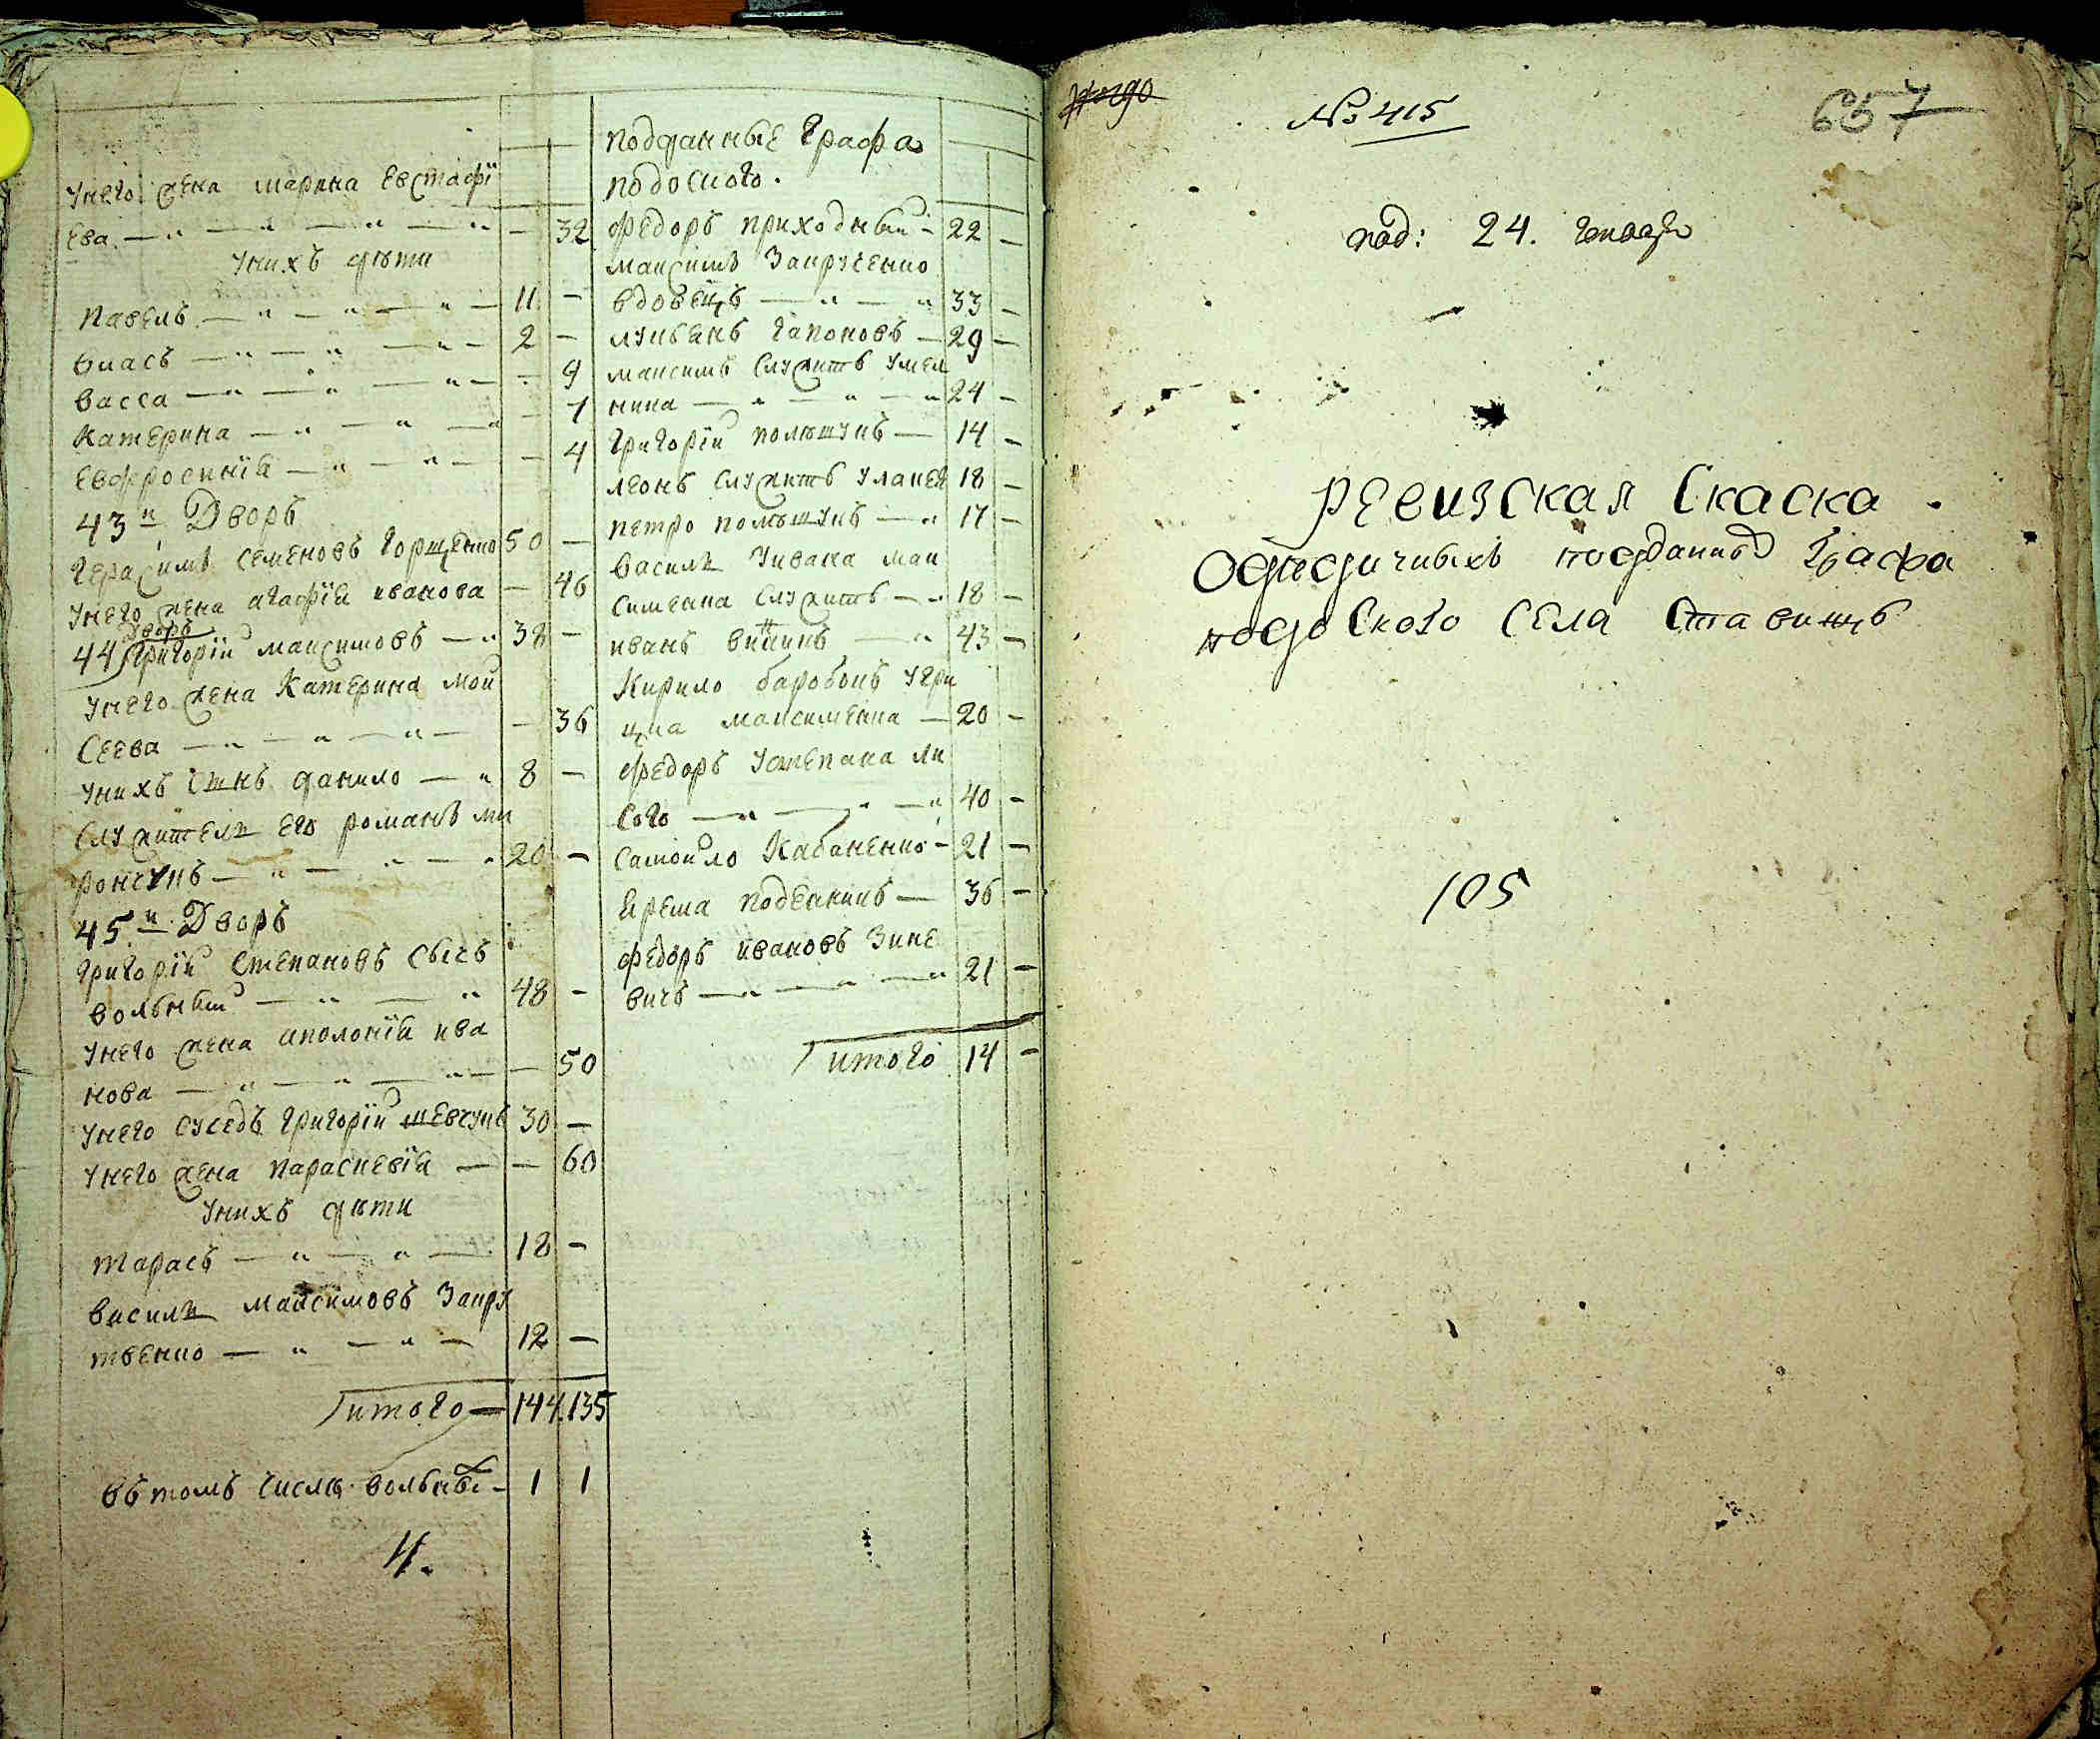 унего жена марина евстафі
ева — 32
унихъ дѣти
павелъ — 11 —
власъ — 2 —
васса — 9
катерина — 7
евфросинїя — 4
43й Дворъ
герасимъ семеновъ горщенко 50 —
унего жена агафїя иванова — 46
44 дворъ григорїй максимовъ — 38 —
унего жена Катерина мой
сеева — 36
унихъ снъ данило — 8 —
служитель его романъ ми
рончукъ — 20 —
45й Дворъ
григорїй степановъ сысъ
вольный — 48 —
унего жена аполонїя ива
нова — 50
унего суседъ григорїй шевчукъ 30 —
унего жена параскевїя — 60
унихъ дѣти
тарасъ — 18 —
василь максимовъ
твенко — 12 —
итого — 144 135
въ томъ числѣ вольны — 1 1
подданные графа
федоръ приходный — 22 —
максимъ закрученко
вдовецъ — 33 —
лукьянъ гапоновъ — 29 —
максимъ служитъ умел
ника — 24 —
григорїй полѣшукъ — 14 —
леонъ служитъ 18 —
петро полѣшукъ — 17 —
василь уивана мак
сименка служитъ — 18 —
иванъ 43 —
Кирило барабонъ угри
цка максименка — 20 —
федоръ устепана ли
сого — 40 —
самойло Кабаненко — 21 —
ярема — 36 —
федоръ ивановъ зине
вичъ — 21 —
итого 14 —
№ 415
657
под: 24. генваря
ревизская скаска
подданныхъ графа
села ставищъ
105